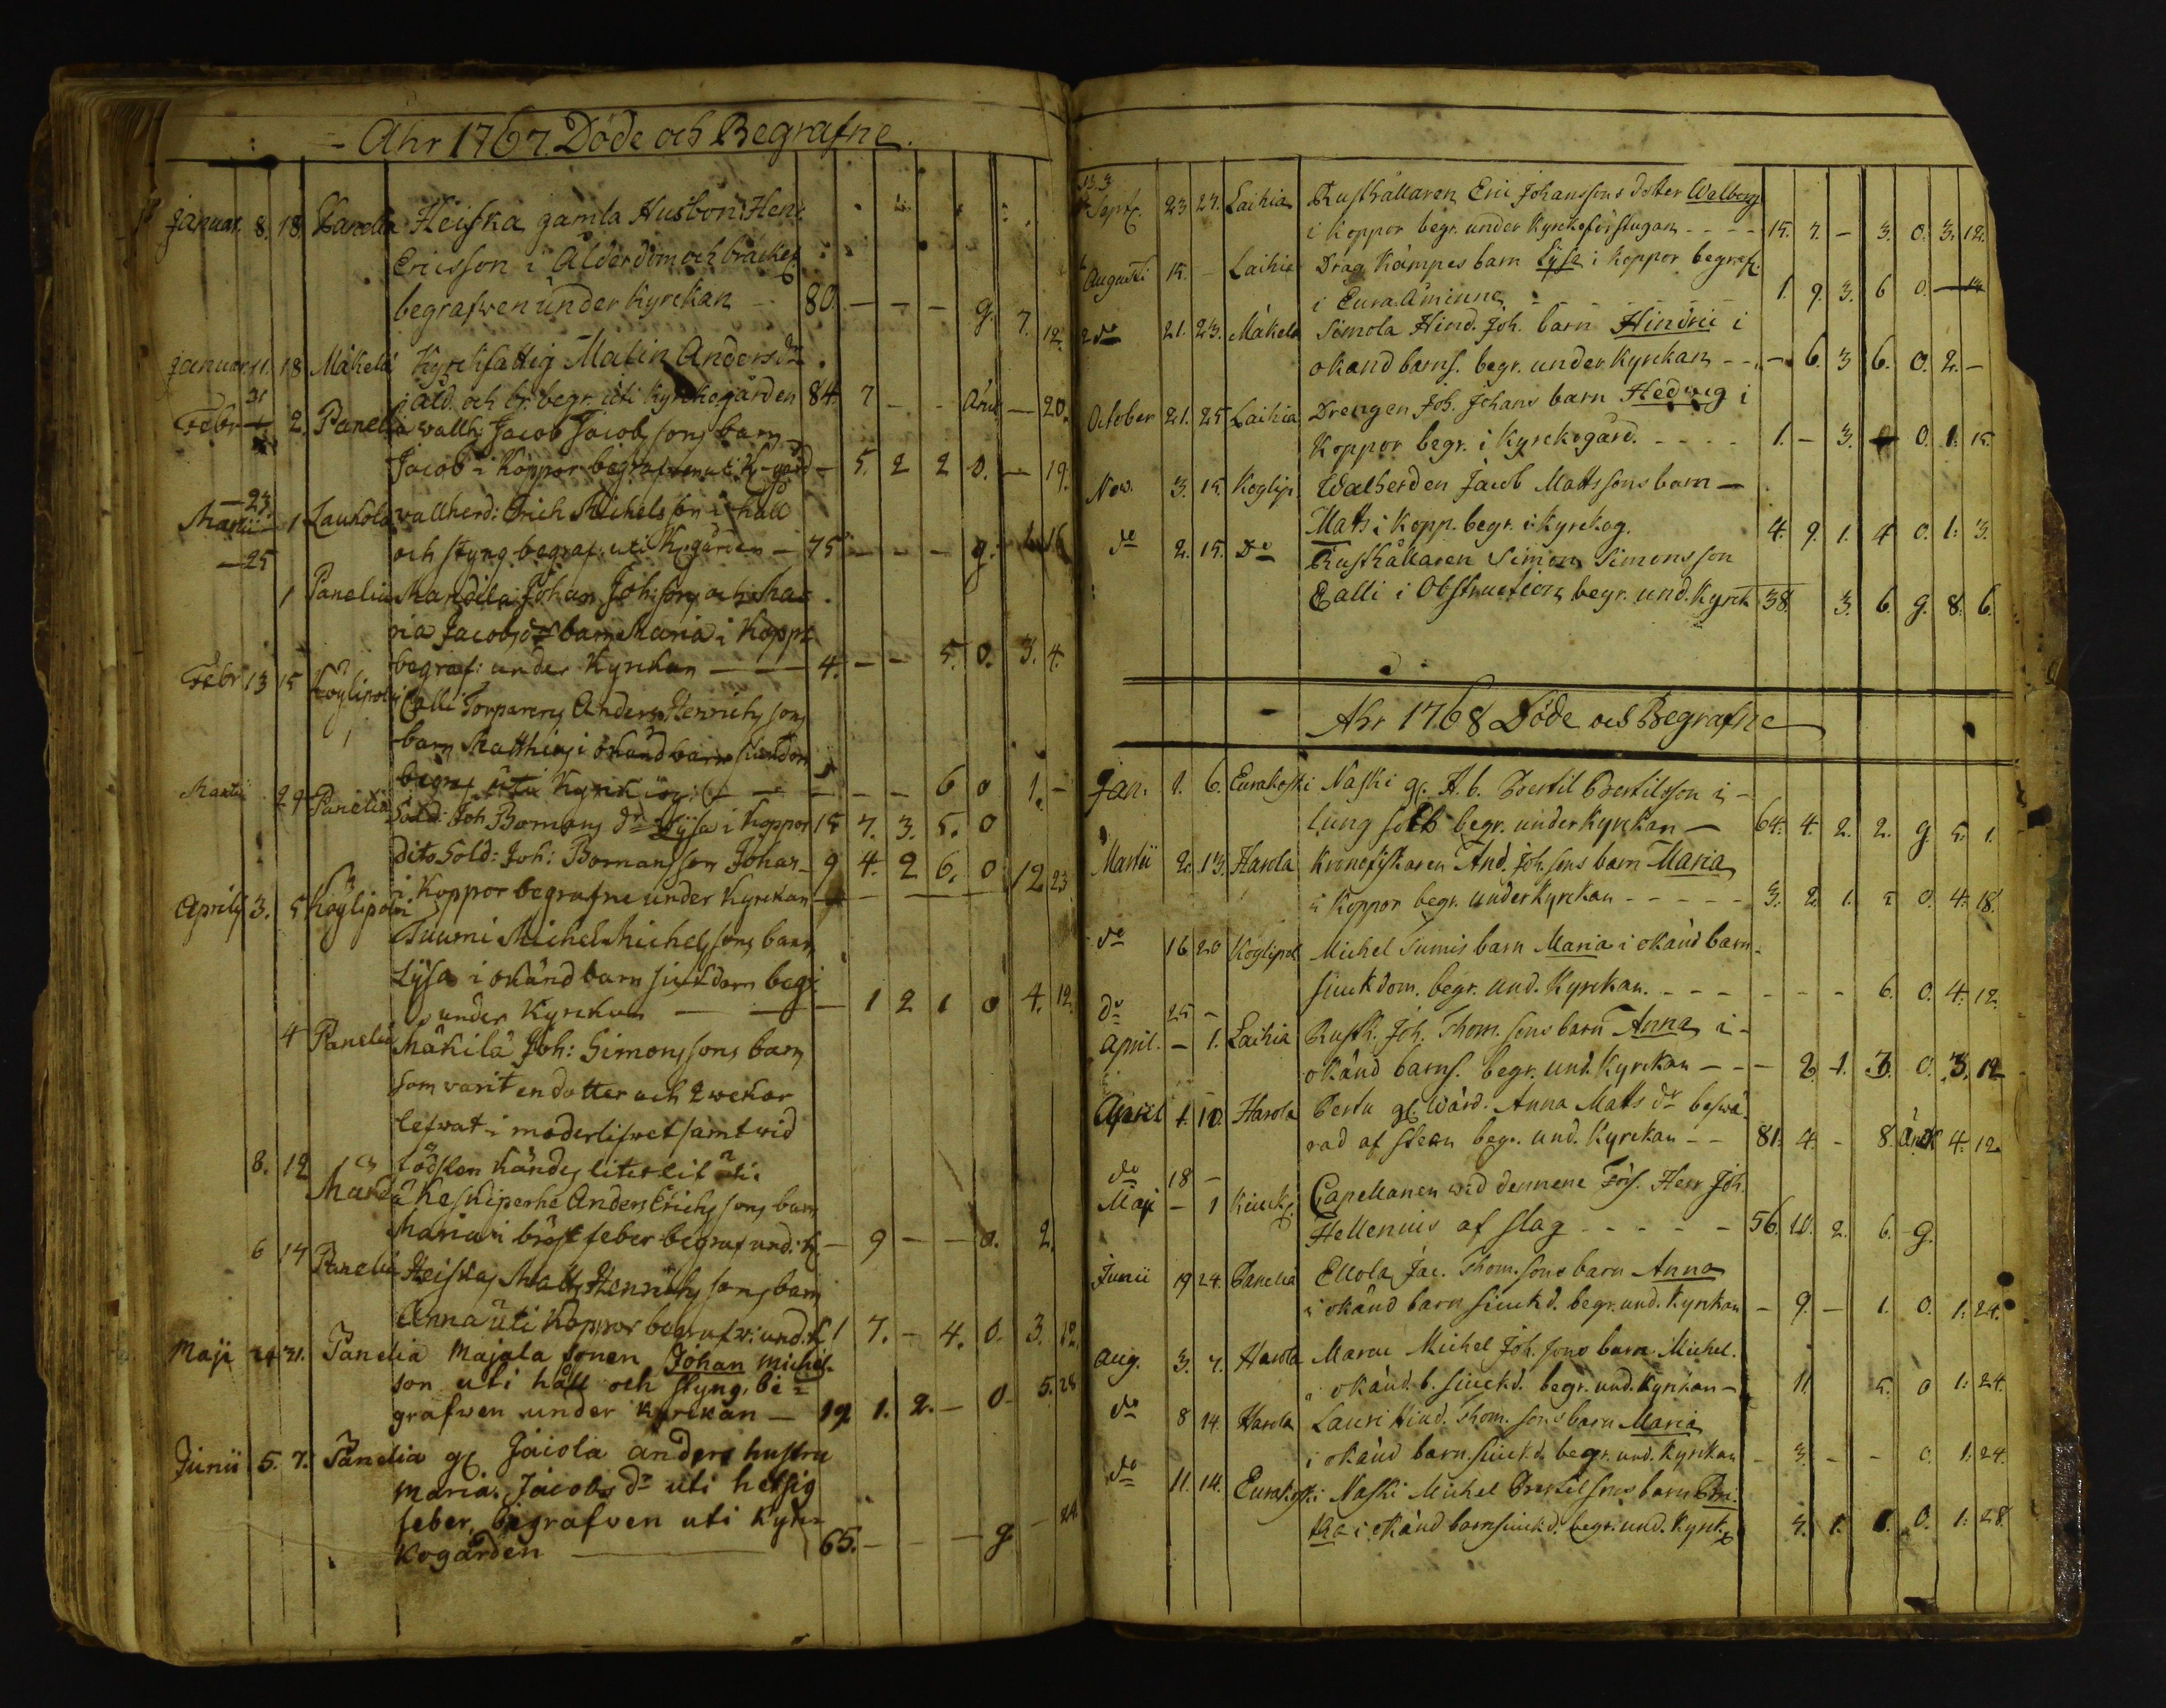 Ahr 1767. Döde och Begrafne.
Januar. 8. 18. Panelia Heiska gamla Husbon: Hen:
Ericsson i Ålderdom och bräckel
begrafwen under Kyrckan 80. — — — g. 7. 12.
Januar 11. 18 Mäkelä Kyrckfattig Malin Anders dr
i åld. och br. begr. uti Kyrckogården 84. 7 — — — 20.
31
Febr 1 2. Panelia wallh: Jacob Jacobssons barn
Jacob i Koppor begrafwen uti K-gård — 5. 2 2 0. — 19.
— 23.
Martii 1 Laukola wallherd: Erich Michelsson i håll
och styng begraf: uti K:gården — 75 — — — g. 16
— 25
1 Panelia Mandila Johan Joh:sons och Ma-
ria Jacobs dr barn Maria i Koppr
begraf: under Kyrckan — — 4. — — 5. 0. 3. 4.
Febr 13 15 Köylipolvi Calli Torparens Anders Henrichssons
barn Matthias i okänd barn siukdom
begr: uti Kyrckiog: — — — — 6 0 1. —
Martii 29 Panelia Sold: Joh Bomans dr Lysa i Koppor 15 7. 3. 5. 0
dito Sold: Joh: Bomans son Johan 9 4. 2 6. 0 12 23
i Koppor begrafne under Kyrckan
Aprilis 3. 5 Köylipolvi
Tuumi Michel Michelssons barn
Lysa i okänd barn siukdom begr:
under Kyrckan — — — 1 2 1 0 4. 12.
4 Panelia Mäkilä Joh: Simonssons barn
som varit en dotter och 2 wekor
lefwat i moderlifwet samt wid
födslen kändes liter lif uti
8. 12 Keskiperhe Anders Erichssons barn
Maria i bröst feber begraf und: K. — 9 — — 0. 2.
6 14 Panelia Heiska Matts Henrichssons barn
Anna uti Koppor begrafw: und. K 1 7. — 4. 0. 3. 12.
Maji 24 31. Panelia Majala sonen Johan Michel-
son uti håll och styng, be-
grafwen under Kyrckan — 19. 1. 2. — 0 5. 28
Junii 5. 7. Panelia gl Jaiola anders hustru
Maria Jacobs dr uti hetsig
feber, begrafven uti Kyrc-
kogården — 65. — — — g — 24.
Sept. 23 27. Laihia Rusthållaren Eric Johanssons dotter Walborg
i Koppor begr. under Kyrckoförstugan — — 15. 7. — 3. 0. 3. 12.
Augusti 15. — Laihia Dräg Kämpes barn Lysa i Koppor begraf.
i Eura Åminne — — 1. 9. 3. 6 0.
do 21. 23. Mäkelä Simola Hind. Joh. barn Hindric i
okänd barns. begr. under Kyrckan — — 6. 3 6. 0. 2. —
October 21. 25 Laihia Drengen Joh. Johans barn Hedwig i
Koppor begr. i Kyrckogård. — — 1. — 3. 0. 1. 15.
Nov. 3. 15. Köylip. Walherden Jacob Mattssons barn —
Matts i Kopp. begr. i Kyrckog. 4. 9. 1. 4 0. 1. 3.
do 2. 15. Do Rusthållaren Simon Simonsson
Calli i Obstruction begr. und. Kyrck 38. 3. 6. g. 8. 6.
Ahr 1768 Döde och Begrafne
Jan. 1. 6. Eurakoski Naski gl. H. b. Bertil Bertilsson i —
lung sot begr. under Kyrckan — 64. 4. 2. 2. g 5. 1.
Martii 2. 13. Harola Kronofiskaren And. Joh. sons barn Maria
i Koppor begr. under Kyrckan — — 3. 2. 1. 2 0. 4. 18.
do 16 20 Köylipol Michel Tumis barn Maria i okänd barn-
siuckdom. begr. und. Kyrckan. — — — — — 6. 0. 4. 12.
do 25 —
April. — 1. Laihia Rusth. Joh. Thom. sons barn Anna i —
okänd barns. begr. und. Kyrckan — — 2. 1. 3. 0. 3. 12
April 1. 10. Harola Pertu gl. Wärd. Anna Matts dr beswä-
rad af steen begr. und. Kyrckan — — 81. 4. — 8. Änck 4. 12.
do 18 —
Maji — 1 Kiuck. Capellanen wid dennene Förs. Herr Joh.
Hellenius af slag — — — 56. 10. 2. 6. g.
Junii 19 24. Panelia Ellola Jac. Thom. sons barn Anna
i okänd barn siuckd. begr. und. Kyrckan — 9. — 1. 0. 1. 24.
Aug. 3. 7. Harola Michel Joh. sons barn Michel.
i okänd. b. siuckd. begr. und. Kyrckan — 11. 5. 0 1: 24.
do 8 14. Harola Lauri Hind. Thom. sons barn Maria
i okänd barn. siuckd. begr. und. Kyrckan — 3. — — 0. 1: 24.
do 11. 14. Eurakoski Naski Michel Bertilsons barn Bri-
tha i okänd barnsiuckd. begr. und. Kyrck. 3. 1. 1. 0. 1: 28.